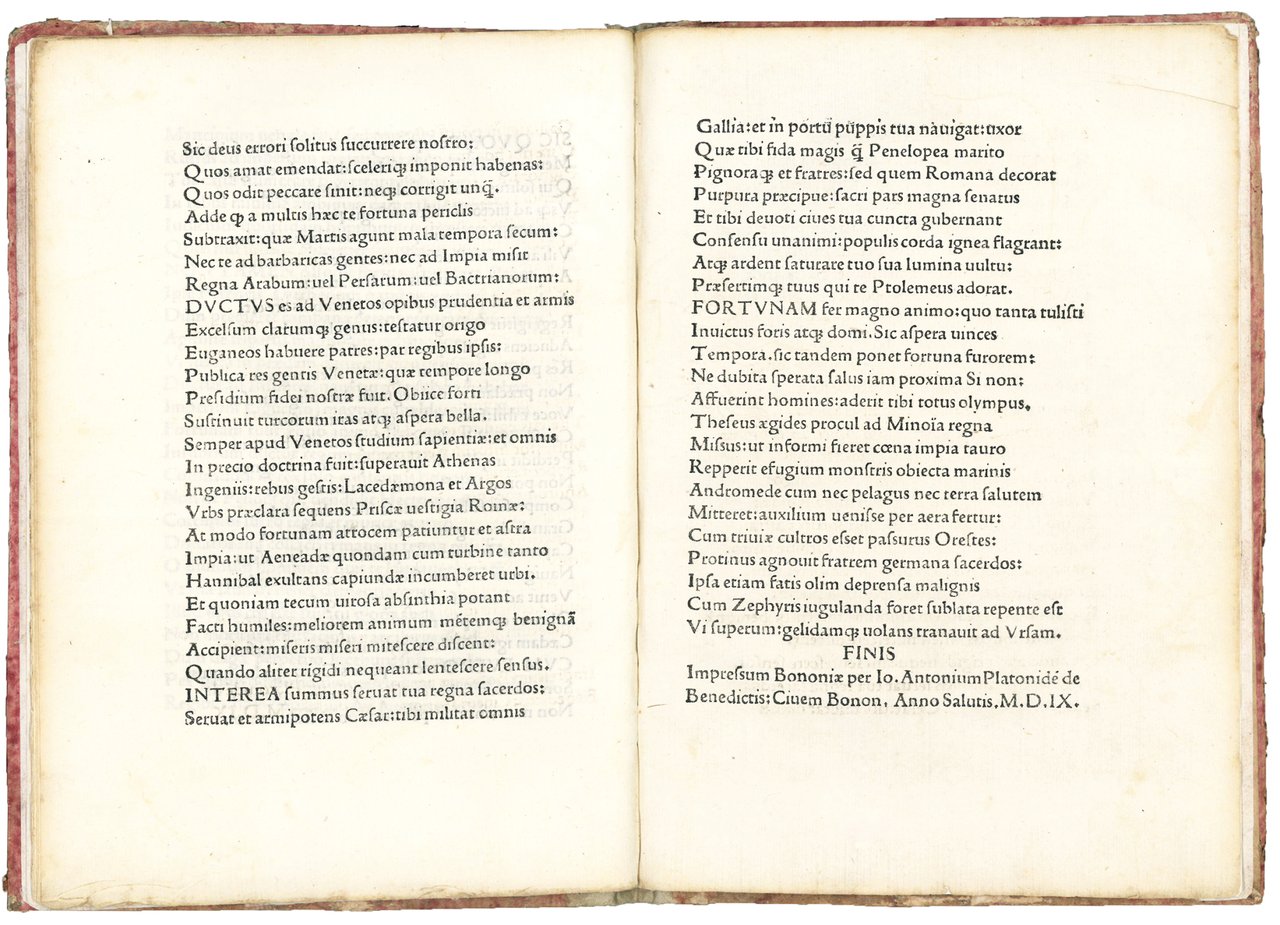 Sic deus errori ſolitus ſuccurrere noſtro:
Quos amat emendat:ſceleriqꝫ imponit habenas:
Quos odit peccare ſinit:neqꝫ corrigit unq̄.
Adde ꝙ a multis hæc te fortuna periclis
Subtraxit:quæ Martis agunt mala tempora ſecum:
Nec te ad barbaricas gentes:nec ad Impia miſit
Regna Arabum:uel Perſarum:uel Bactrianorum:
DVCTVS es ad Venetos opibus prudentia et armis
Excelſum clarumqꝫ genus:teſtatur origo
Euganeos habuere patres:par regibus ipſis:
Publica res gentis Venetæ:quæ tempore longo
Preſidium fidei noſtræ fuit. Obiice forti
Suſtinuit turcorum iras atqꝫ aſpera bella.
Semper apud Venetos ſtudium ſapientiæ:et omnis
In precio doctrina fuit:ſuperauit Athenas
Ingeniis:rebus geſtis:Lacedæmona et Argos
Vrbs præclara ſequens Priſcæ ueſtigia Romæ:
At modo fortunam atrocem patiuntur et aſtra
Impia:ut Aeneadæ quondam cum turbine tanto
Hannibal exultans capiundæ incumberet urbi.
Et quoniam tecum uiroſa abſinthia potant
Facti humiles:meliorem animum mētemqꝫ benignā
Accipient:miſeris miſeri miteſcere diſcent:
Quando aliter rigidi nequeant lenteſcere ſenſus.
INTEREA ſummus ſeruat tua regna ſacerdos:
Seruat et armipotens Cæſar:tibi militat omnis
Gallia:et in portū pūppis tua nàuigat:uxor
Quæ tibi fida magis q̄ Penelopea marito
Pignoraqꝫ et fratres:ſed quem Romana decorat
Purpura præcipue:ſacri pars magna ſenatus
Et tibi deuoti ciues tua cuncta gubernant
Conſenſu unanimi:populis corda ignea flagrant:
Atqꝫ ardent ſaturare tuo ſua lumina uultu:
Præſertimqꝫ tuus qui te Ptolemeus adorat.
FORTVNAM fer magno animo:quo tanta tuliſti
Inuictus foris atqꝫ domi. Sic aſpera uinces
Tempora.ſic tandem ponet fortuna furorem:
Ne dubita ſperata ſalus iam proxima Si non:
Affuerint homines:aderit tibi totus olympus.
Theſeus ægides procul ad Minoïa regna
Miſſus:ut informi fieret cœna impia tauro
Repperit efugium monſtris obiecta marinis
Andromede cum nec pelagus nec terra ſalutem
Mitteret:auxilium ueniſſe per aera fertur:
Cum triuiæ cultros eſſet paſſurus Oreſtes:
Protinus agnouit fratrem germana ſacerdos:
Ipſa etiam fatis olim deprenſa malignis
Cum Zephyris iugulanda foret ſublata repente eſt
Vi ſuperum:gelidamqꝫ uolans tranauit ad Vrſam.
FINIS
Impreſſum Bononiæ per Io. Antonium Platonidē de
Benedictis: Ciuem Bonon. Anno Salutis. M.D.IX.